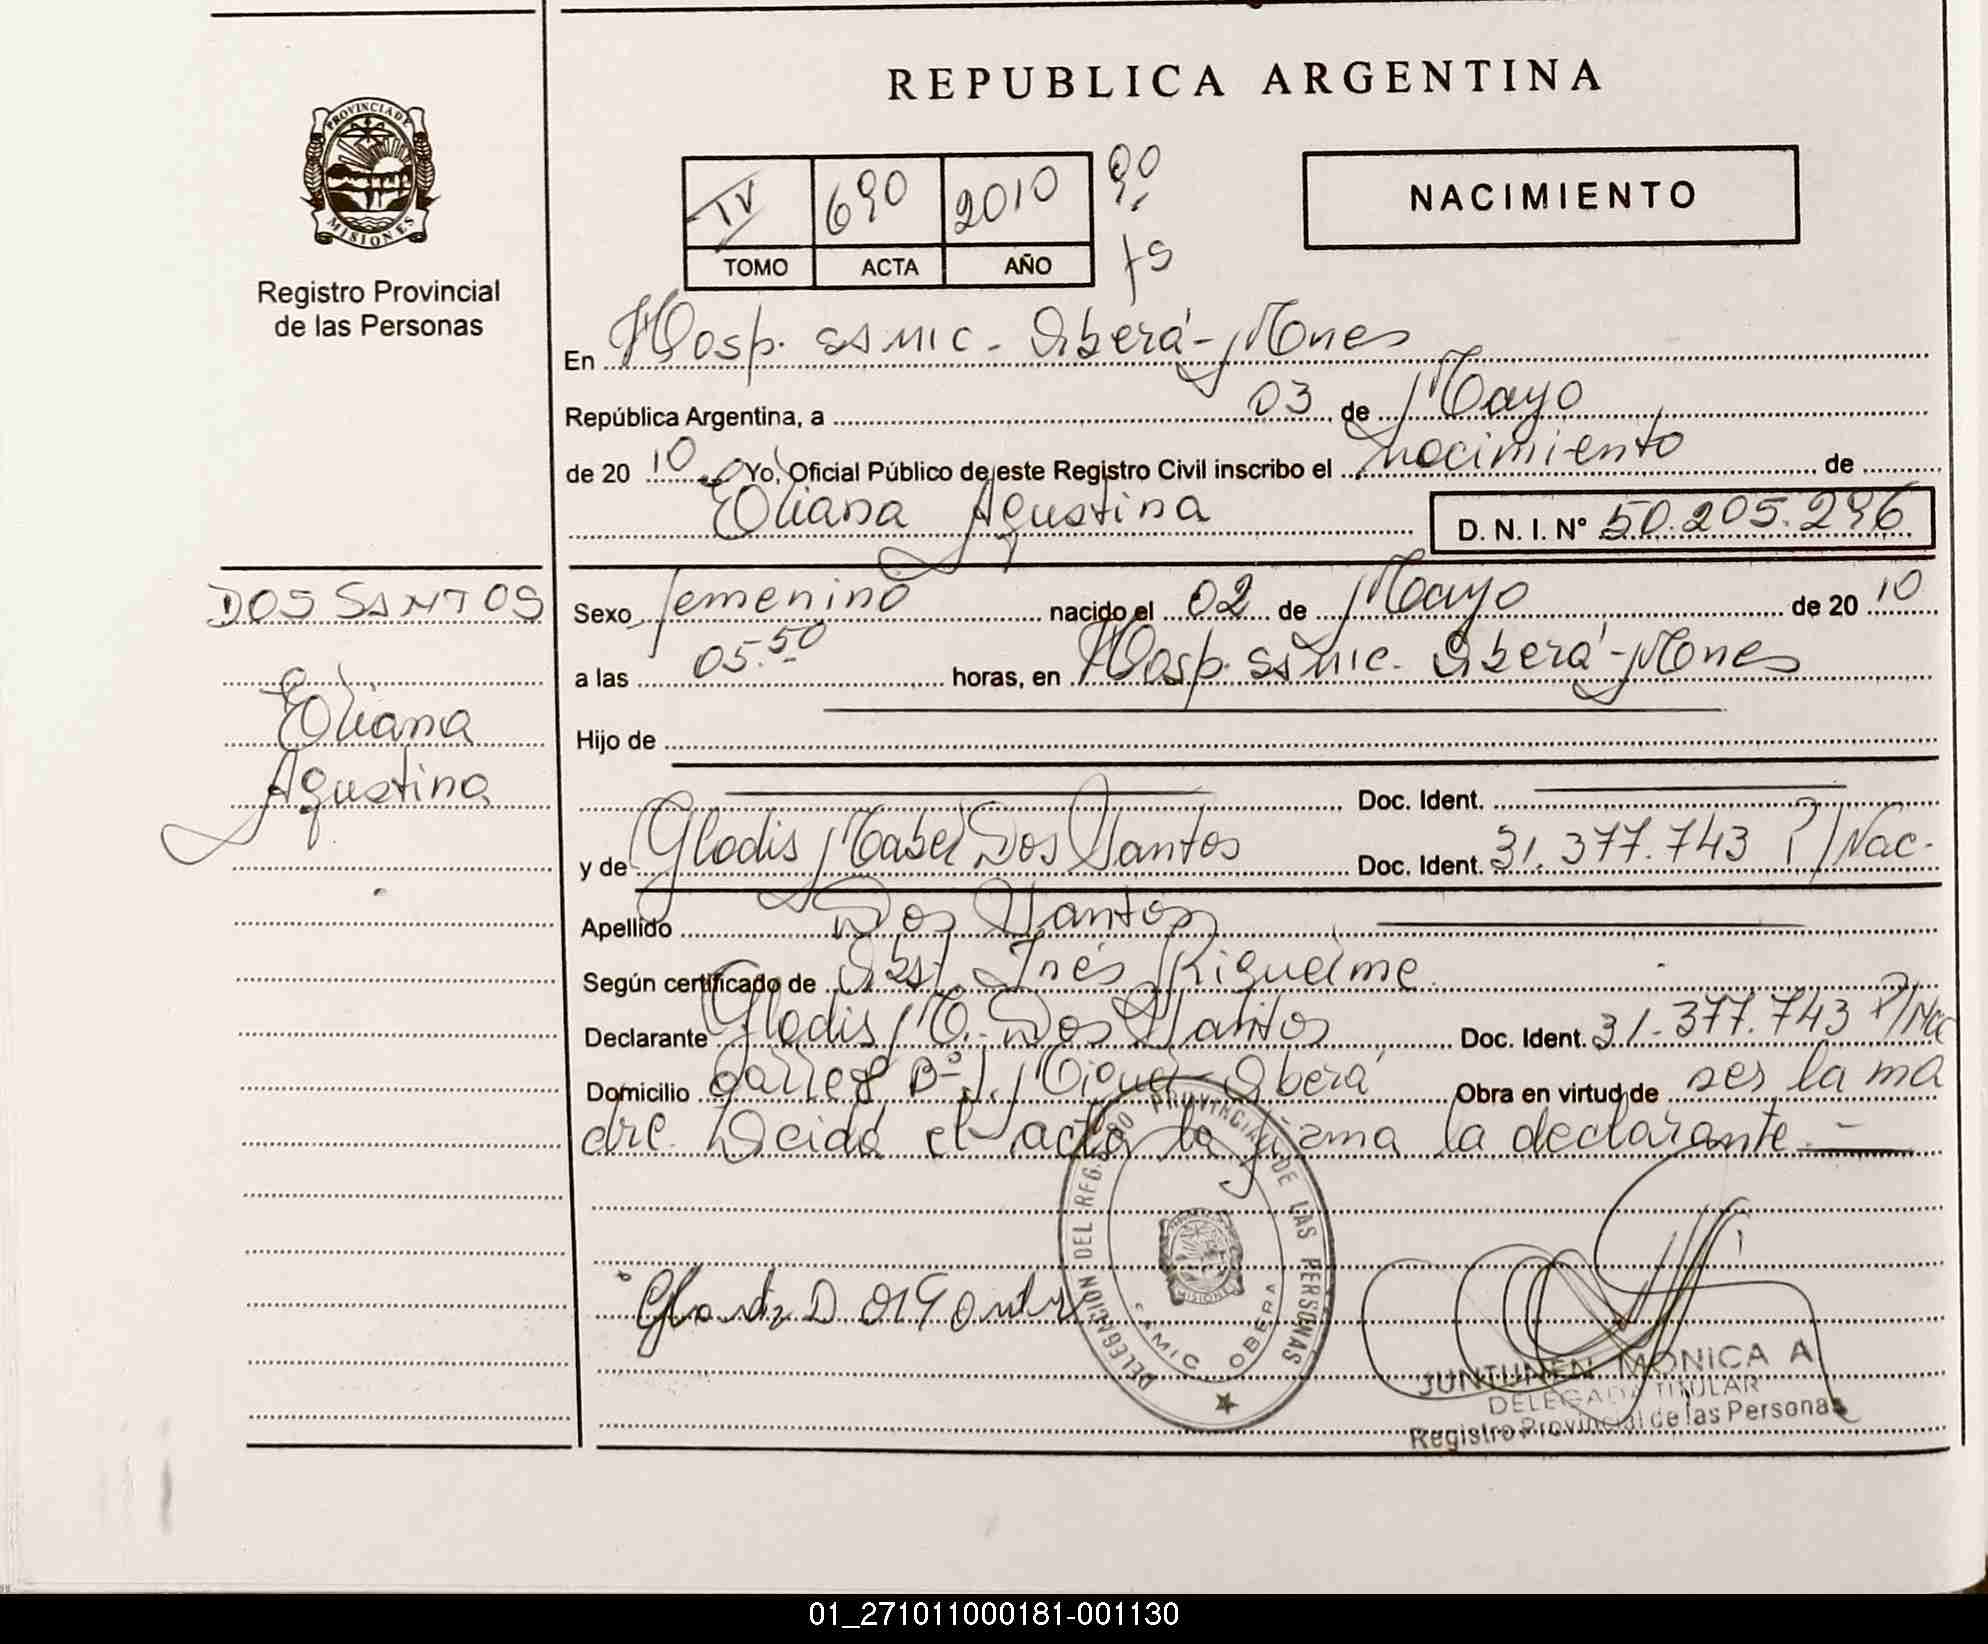 REPUBLICA ARGENTINA
PROVINCIA DE
MISIONES
Registro Provincial
de las Personas
IV 690 2010 90
TOMO ACTA AÑO fs
NACIMIENTO
En Hosp. SAMIC - Oberá - Mnes
República Argentina, a 03 de Mayo
de 20 10 Yo, Oficial Público de este Registro Civil inscribo el nacimiento de
Eliana Agustina D. N. I. Nº 50.205.296
DOS SANTOS
Eliana
Agustina
Sexo femenino nacido el 02 de Mayo de 20 10
a las 05.50 horas, en Hosp. SAMIC - Oberá - Mnes
Hijo de
Doc. Ident.
y de Gladis Mabel Dos Santos Doc. Ident. 31.377.743 P/Nac.
Apellido Dos Santos
Según certificado de Obst. Inés Riquelme
Declarante Gladis M. Dos Santos Doc. Ident. 31.377.743 P/Nac
Domicilio Bº S. Miguel - Oberá Obra en virtud de ser la ma
dre. Leida el acta la firma la declarante. =
DELEGACION DEL REG. PROVINCIAL DE LAS PERSONAS
SAMIC OBERA
MISIONES
JUNTUNEN MONICA A
DELEGADA TITULAR
Registro Provincial de las Personas
01_271011000181-001130